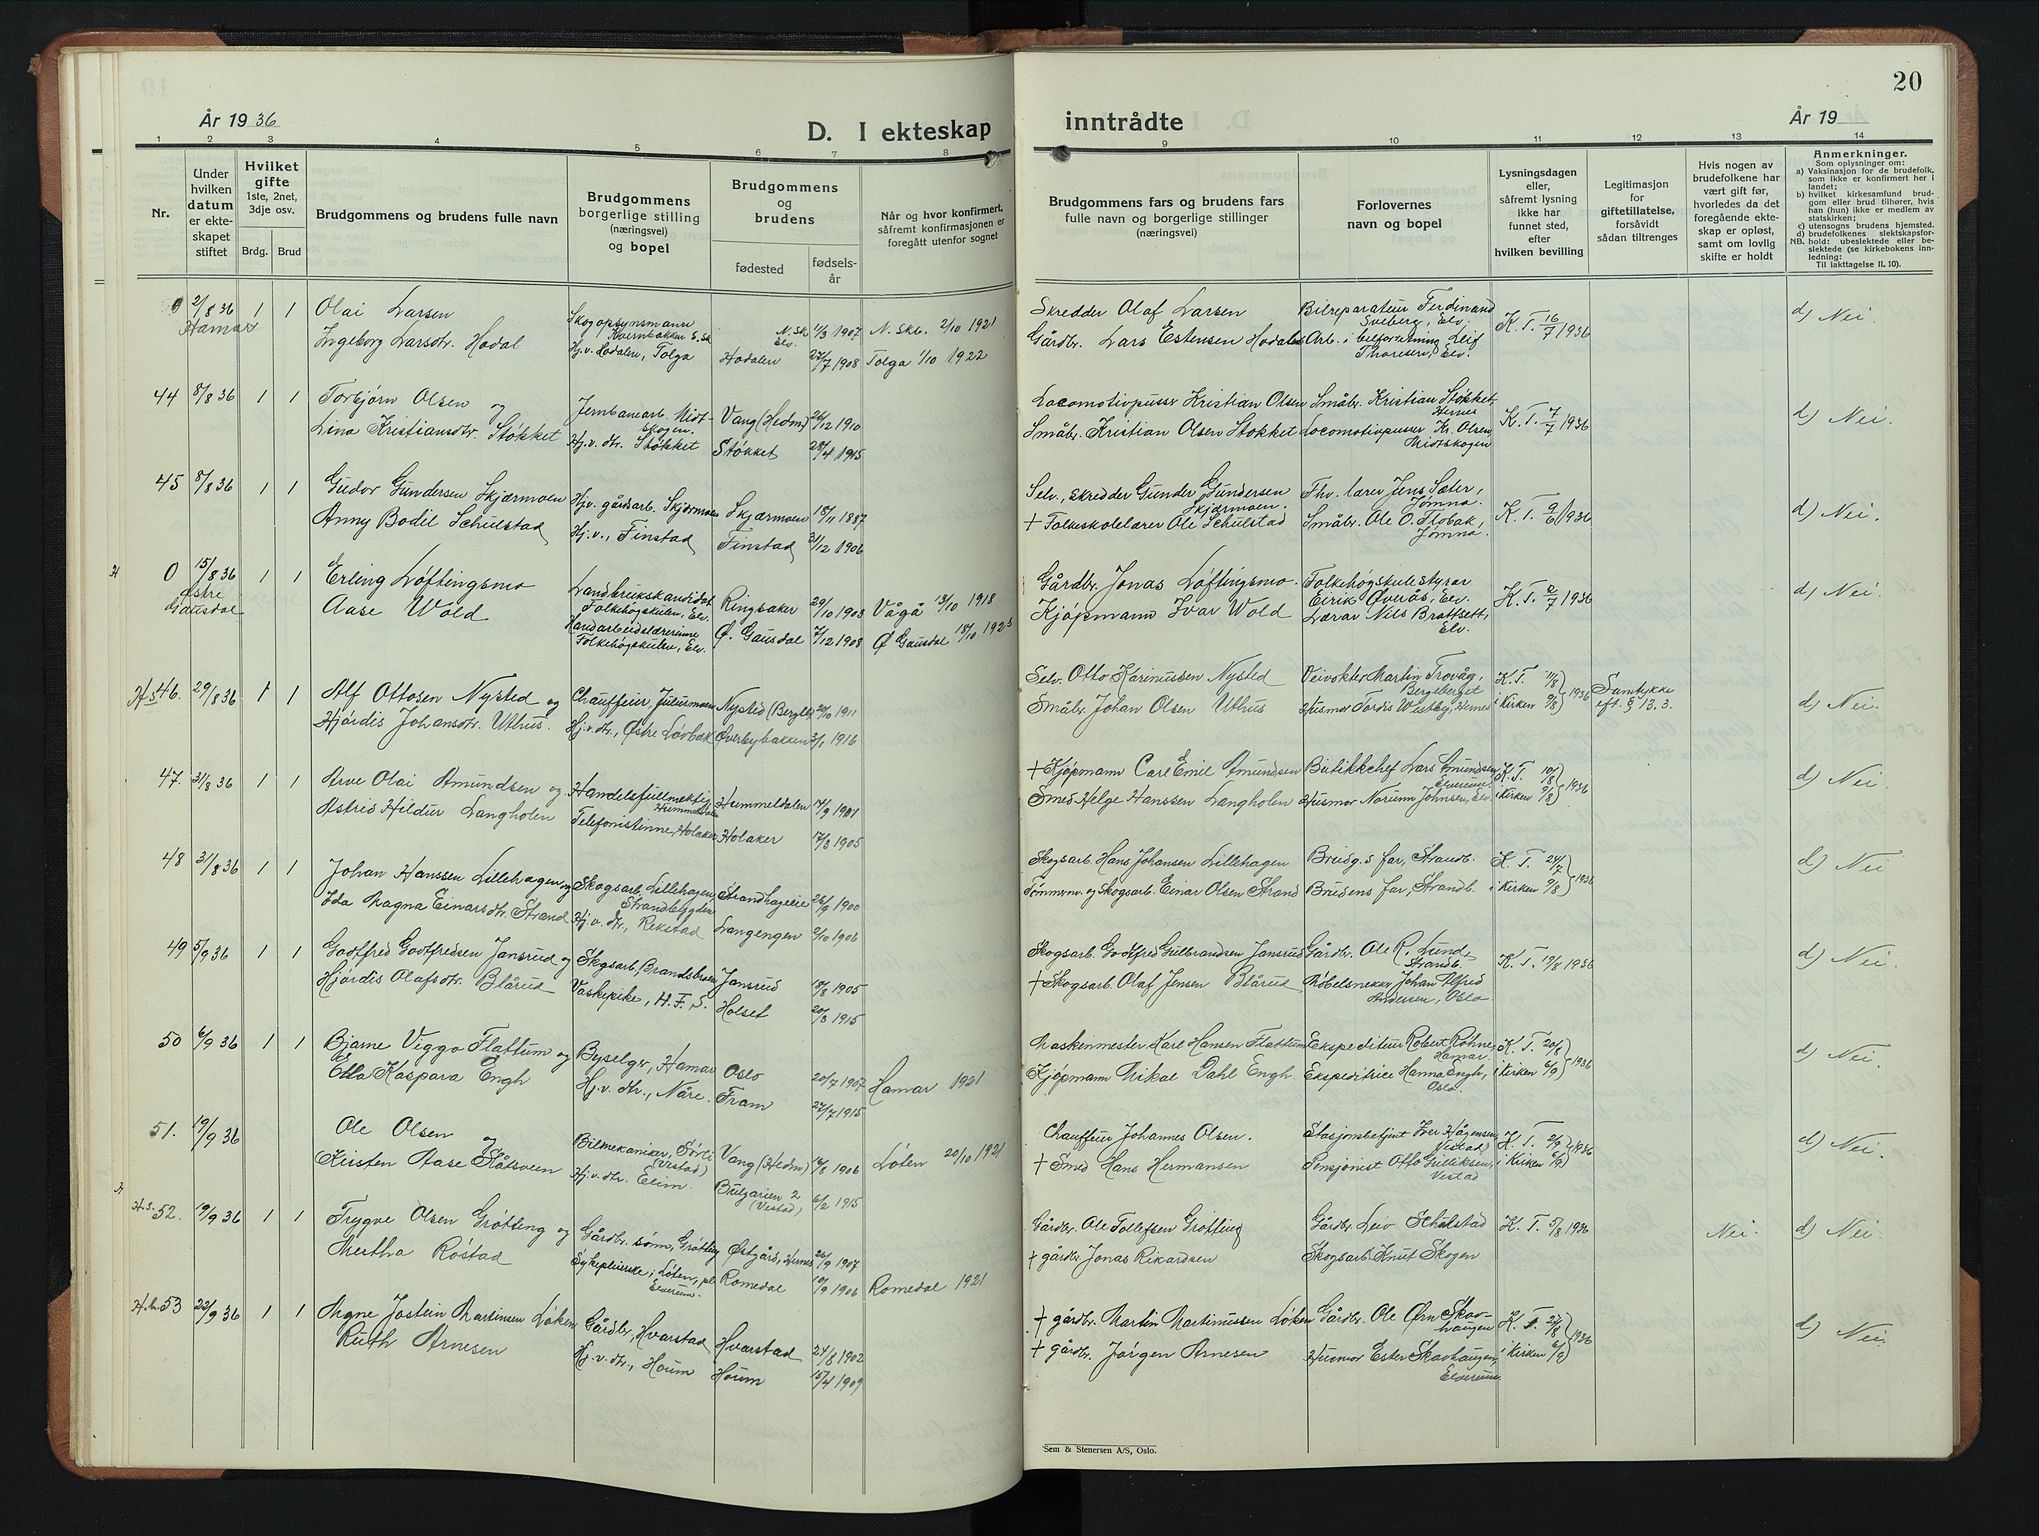 År 1936
D. I ekteskap
1 2 3 4 5 6 7 8
Nr.
Under hvilken datum er ekteskapet stiftet
Hvilket gifte 1ste, 2net, 3dje osv.
Brdg. Brud
Brudgommens og brudens fulle navn
Brudgommens borgerlige stilling (næringsvei) og bopel
Brudgommens og brudens
fødested
fødselsår
Når og hvor konfirmert, såfremt konfirmasjonen er foregått utenfor sognet
0 2/8 36 1 1 Olai Larsen
Hamar
Skogopsynsmann Kvernbakken E. Sk
N. Sk. Elv. 1/3 1907 N. Skb. 2/10 1921
Ingeborg Larsdtr. Hodal Hj.v. Hodalen, Tolga Hodalen 27/7 1908 Tolga 1/10 1922
44 8/8 36 1 1 Torbjørn Olsen og Jernbanearb. Midtskogen. Vang (Hedm) 26/12 1910
Lina Kristiansdtr. Støkket Hj.v. dtr. Støkket Støkket 28/4 1915
45 8/8 36 1 1 Gudor Gundersen Skjærmoen Hjv. gårdsarb. Skjærmoen Skjærmoen 18/11 1887
Anny Bodil Schulstad Hj.v., Finstad Finstad 31/12 1906
H 0 15/8 36 1 1 Erling Løftingsmo Landbrukskandidat Folkehøgskulen, Elv. Ringsaker 29/10 1903 Vågå 13/10 1918
Østre Gausdal
Aase Wold Handarbeidslærerinne Folkehøgskulen, Elv. Ø. Gausdal 7/12 1908 Ø Gausdal 18/10 1923
H.s 46. 29/8 36 1 1 Alf Ottosen Nysted og Chauffeur, Julusmoen Nysted (Bergeb.) 20/10 1911
Hjørdis Johansdtr. Uthus. Hj.v. dtr., Østre Løvbak Øverbybakken 3/1 1916
47. 31/8 36 1 1 Arve Olai Amundsen og Handelsfullmektig Hummeldalen Hummeldalen 14/9 1901
Astrid Hildur Langholen Telefonistinne, Holaker Holaker 17/3 1905
48 31/8 36 1 1 Johan Hanssen Lillehagen og Skogsarb. Lillehagen, Strandbygden Strandhageeie 26/9 1900
Eda Magna Einarsdtr. Strand Hj.v. dtr., Rekstad Langengen 2/10 1906
49 5/9 36 1 1 Godtfred Godtfredsen Jansrud og Skgsarb. Brandsbråten Jansrud 18/8 1905
Hjørdis Olafsdtr. Blårud Vaskepike, H.F.S. Holset 20/3 1915
50 6/9 36 1 1 Bjarne Viggo Flattum og Byselger, Hamar Oslo 20/7 1907 Hamar 1921
Ella Kaspara Engh Hj.v. dtr., Nåre. Fram 27/7 1915
51. 19/9 36 Ole Olsen og Bilmekaniker, Sørli (Vestad) Vang (Hedm) 14/8 1906 Løten 20/10 1921
Kirsten Aase Flåtsveen Hj.v. dtr. Elim. Bulgarien 2 (Vestad) 6/2 1915
H
H.s. 52. 19/9 36 1 1 Trygve Olsen Grøtting og Gårdbr. sønn, Grøtting Østgård, Hernes 26/9 1907
Mertha Rostad Sykepleierske i Løten, pl Elverum. Romedal 10/9 1906 Romedal 1921
H.h 53 22/9 36 1 1 Magne Jostein Martinsen Løken Gårdbr., Hvarstad Hvarstad 24/8 1902
Ruth Arnesen Hj.v. dtr., Houm Houm 15/4 1909
20
inntrådte
År 19
9 10 11 12 13 14
Brudgommens fars og brudens fars fulle navn og borgerlige stillinger (næringsvei)
Forlovernes navn og bopel
Lysningsdagen eller, såfremt lysning ikke har funnet sted, efter hvilken bevilling
Legitimasjon for giftetillatelse, forsåvidt sådan tiltrenges
Hvis nogen av brudefolkene har vært gift før, hvorledes da det foregående ekteskap er opløst, samt om lovlig skifte er holdt
Anmerkninger.
Som oplysninger om:
a) Vaksinasjon for de brudefolk, som ikke er konfirmert her i landet;
b) hvilket kirkesamfund brudgom eller brud tilhører, hvis han (hun) ikke er medlem av statskirken;
c) utensogns brudens hjemsted.
d) brudefolkenes slektskapsforhold: ubeslektede eller beslektede (se kirkebokens innledning:
NB.
Til iakttagelse II. 10).
Skredder Olaf Larsen Bilreparatør Ferdinand Sveberg, Elv. K. T. 16/7 1936 d) Nei
Gårdbr. Lars Estensen Hodalen Arb. i bilforretning Leif Thoresen, Elv.
Locomotivpusser Kristian Olsen Småbr. Kristian Støkket, Hernes K. T. 7/7 1936 d) Nei.
Småbr. Kristian Olsen Støkket Locomotivpusser Kr. Olsen, Midtskogen
Selv., skredder Gunder Gundersen Skjærmoen. Fhv. lærer Jens Sæter, Jømna. K. T. 9/6 1936 d) Nei.
+ Folkeskolelærer Ole Schulstad Småbr. Ole O. Flobak, Jømna.
Gårdbr. Jonas Løftingsmo. Folkehøgskulestyrar Eirik Øvrås, Elv. K. T. 2/7 1936 d) Nei.
Kjøpmann Ivar Wold Lærar Nils Brattsett, Elv.
Selv. Otto Karinussen Nysted Veivokter Martin Trovåg, Bergeberget K. T. 11/8 1936 Samtykke eft. § 13.3. d) Nei.
Småbr. Johan Olsen Uthus Husmor Tordis Westby, Hernes i Kirken 9/8
+ Kjøpmann Carl Emil Amundsen Butikkchef Lars Amundsen Elverum. K. T. 10/8 1936 d) Nei.
Smed Helge Hanssen Langholen Husmor Norunn Johnsen, Elv. i Kirken 9/8
Skogsarb. Hans Johansen Lillehagen Brudg.s far, Strandb. K. T. 24/7 1936 d) Nei
Tømmerm. og Skogsarb. Einar Olsen Strand Brudens far, Strandb. i Kirken 9/8
Skogsarb. Godtfred Gulbrandsen Jansrud Gårdbr. Ole R. Lund, Strandb. K. T. 19/8 1936 d) Nei.
+ Skogsarb. Olaf Jensen Blårud Møbelsnekker Johan Alfred Andersen, Oslo
Maskinmester Karl Hansen Flattum Ekspeditør Robert Rohne, Hamar. K. T. 20/8 1936 d) Nei.
Kjøpmann Mikal Dahl Engh. Ekspeditrice Hanna Engh, Oslo i Kirken 6/9
Chauffeur Johannes Olsen. Stasjonsbetjent Iver Hågensen, Vestad K. T. 2/9 1936 d) Nei.
+ Smed Hans Hermansen Pensjonist Otto Gulliksen, Vestad i Kirken 6/9
Gårdbr. Ole Tollefsen Grøtting Gårdbr. Leiv Schulstad K. T. 5/8 1936 Nei. d) Nei.
+ gårdbr. Jonas Rikardsen Skogsarb. Knut Skogen
+ gårdbr. Martin Martinussen Løken Gårdbr. Ole Ørn Skavhaugen K. T. 25/8 1936 d) Nei.
+ gårdbr. Jørgen Arnesen Husmor Ester Skavhaugen, Elverum. i Kirken 6/9
Sem & Stenersen A/S, Oslo.